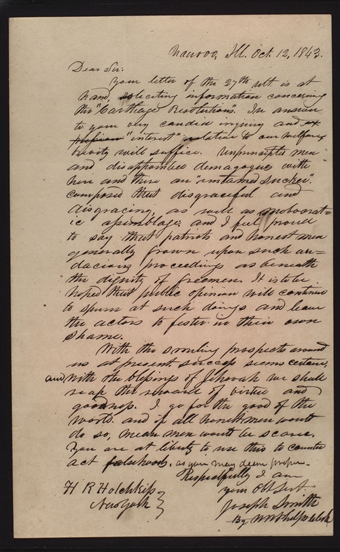 Nauvoo, Ill. Oct. 12, 1843.
Dear Sir:
Your letter of the 27th ult is at
hand, soliciting information concerning
the "Carthage Resolutions. In answer
to your very candid inquiry and
"interest" relation to our welfare
brevity will suffice. Unprincipled men
and disappointed demagogues with
here and there an "untamed Sucker"
composed that disgraceful and
disgracing, as well as mobocrat-
ic assemblage, and I feel proud
to say that patriots and honest men
generally frown upon such au-
dacious proceedings as beneath
the dignity of freemen. It is to be
hoped that public opinion will continue
to spurn at such doings and leave
the actors to fester in their own
shame.
With the smiling prospects around
us at present success seems certain;
and, with the blessings of Jehovah we shall
reap the reward of virtue and
goodness. I go for the good of the
world. and if all honest men would
do so, mean men would be scarce.
You are at liberty to use this to counter
act falsehoods, as you may deem proper.
Respectfully I am
Your Obt Svt
Joseph Smith
By. W W Phelps Clerk
H R Hotchkiss
New York